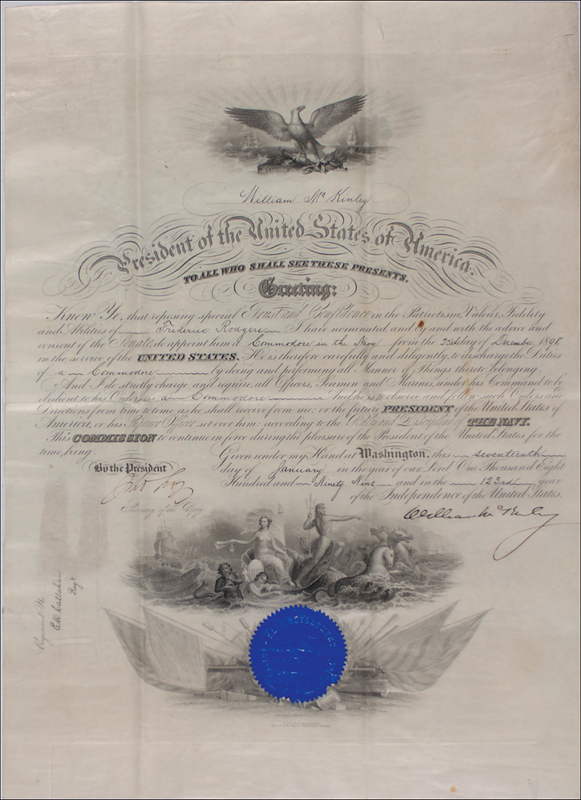 William McKinley
President of the United States of America.
TO ALL WHO SHALL SEE THESE PRESENTS,
Greeting:
Know Ye, that reposing special Trust and Confidence in the Patriotism, Valour, Fidelity
and Abilities of Frederic Rodgers I have nominated and and with the advice and
consent of the Senate do appoint him a Commodore in the Navy from the 25th day of December 1898
in the service of the UNITED STATES. He is therefore carefully and diligently to discharge the Duties
of a Commodore by doing and performing all Manner of Things thereto belonging
And I do strictly charge and require all Officers, Seamen and Marines, under his Command to be
obedient to his Orders as a Commodore And he is to observe and follow such Orders and
Directions from time to time as he shall receive from me, or the future PRESIDENT of the United States of
America, or his Superior Officer set over him, according to the Rules and Discipline of THE NAVY.
This COMMISSION to continue in force during the pleasure of the President of the United States for the
time being.
Given under my Hand at Washington, this seventeenth
By the President
day of January in the year of our Lord One Thousand Eight
Hundred and Ninety Nine and in the 123rd year
of the Independence of the United States.
Secretary of the Navy
William McKinley
Registered No.
E.W. Callahan
Reg'r